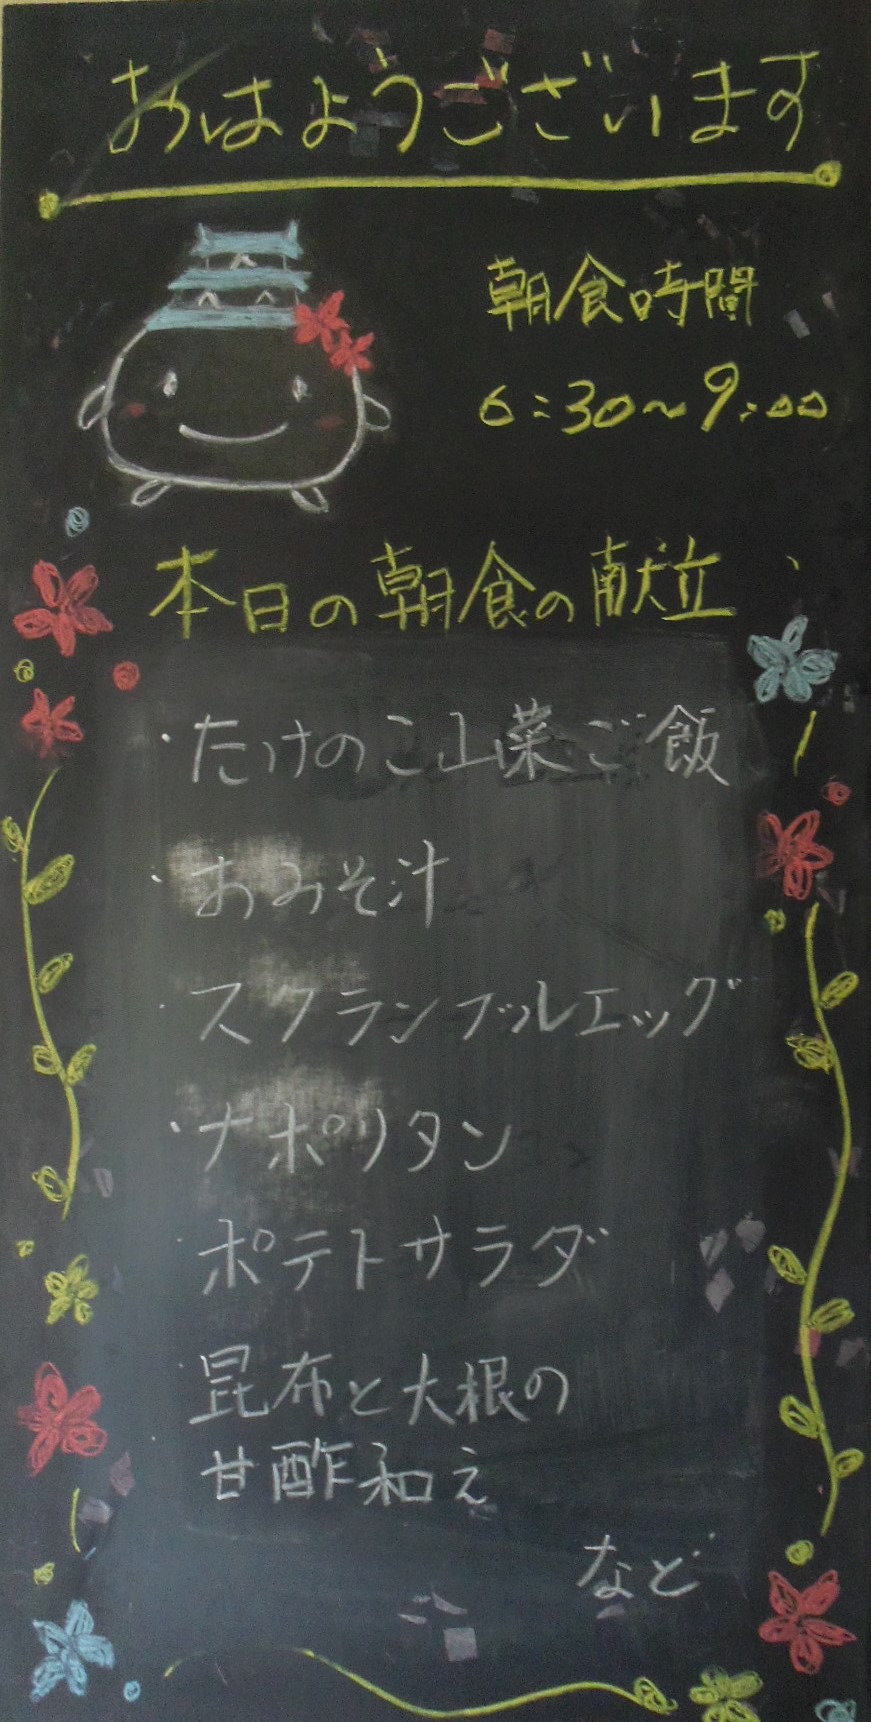 おはようございます
朝食時間
6:30～9:00
本日の朝食の献立
・たけのこ山菜ご飯
・おみそ汁
・スクランブルエッグ
・ナポリタン
・ポテトサラダ
・昆布と大根の
甘酢和え
など